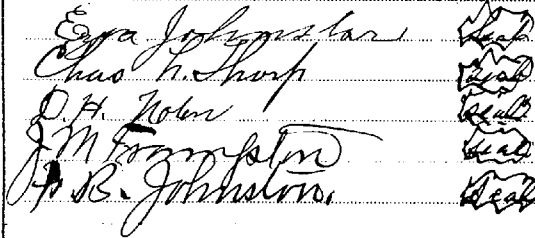 Eva Johnston Seal
Chas H. Thorp Seal
D. H. Nolen Seal
J M Frampton Seal
B. Johnston. Seal